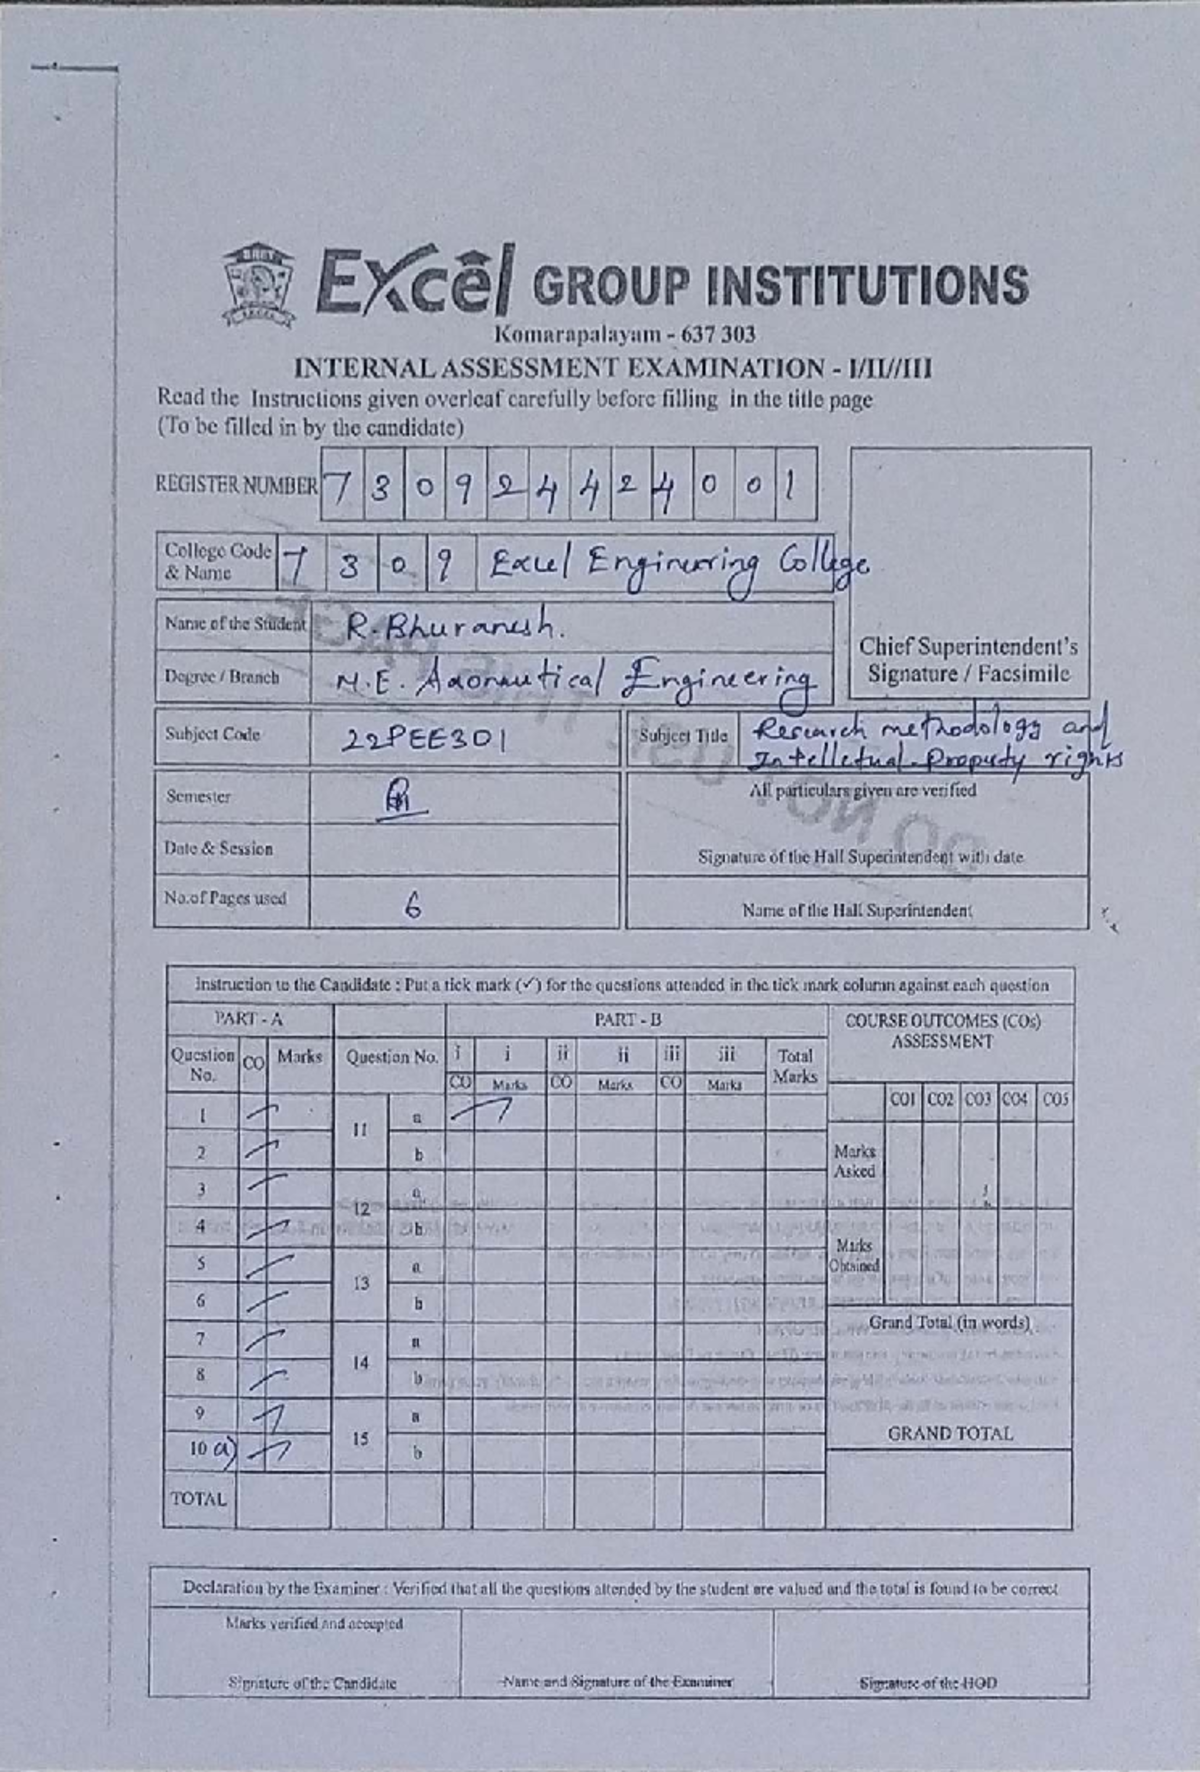 Excel GROUP INSTITUTIONS
Komarapalayam - 637 303
INTERNAL ASSESSMENT EXAMINATION - I/II//III
Read the Instructions given overleaf carefully before filling in the title page
(To be filled in by the candidate)
REGISTER NUMBER 7 3 0 9 2 4 4 2 4 0 0 1
College Code & Name 7 3 0 9 Excel Engineering College
Name of the Student R. Bhuvanesh.
Chief Superintendent's
Signature / Facsimile
Degree / Branch M.E. Aeronautical Engineering
Subject Code 22PEE301 Subject Title Research methodology and
Intelletual Property rights
Semester All particulars given are verified
Date & Session Signature of the Hall Superintendent with date
No.of Pages used 6 Name of the Hall Superintendent
Instruction to the Candidate : Put a tick mark (✓) for the questions attended in the tick mark column against each question
PART - A PART - B COURSE OUTCOMES (COs)
ASSESSMENT
Question No. CO Marks Question No. i i ii ii iii iii Total Marks
CO Marks CO Marks CO Marks
CO1 CO2 CO3 CO4 CO5
1 11 a
2 b Marks Asked
3 12 a
4 b Marks Obtained
5 13 a
6 b
Grand Total (in words)
7 14 a
8 b
9 15 a
GRAND TOTAL
10 a) b
TOTAL
Declaration by the Examiner : Verified that all the questions attended by the student are valued and the total is found to be correct
Marks verified and accepted
Signature of the Candidate Name and Signature of the Examiner Signature of the HOD